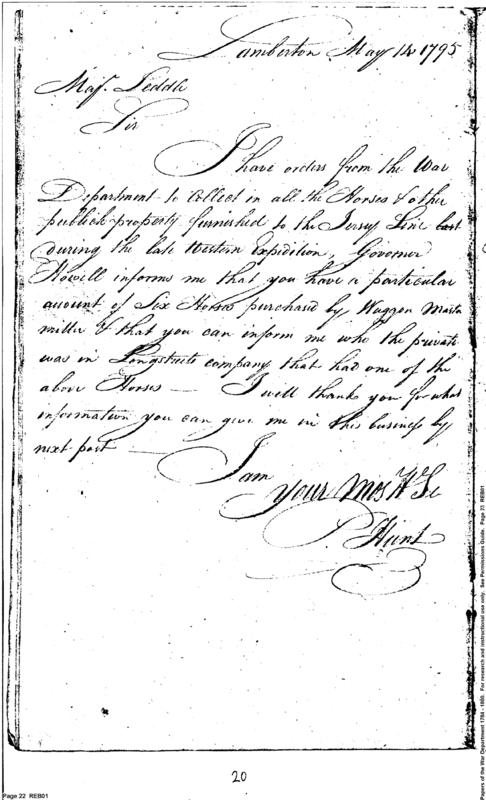 Lamberton May 14 1795
Maj. Peddle
Sir
I have orders from the War
Department to Collect in all the Horses & other
publick property furnished to the Jersey Line last
during the late Western Expedition, Governor
Howell informs me that you have a particular
account of Six Horses purchased by Waggon Master
Miller & that you can inform me who the private
was in Longstreets company that had one of the
above Horses — I will thank you for what
information you can give me in this business by
next post —
I am
your Mos H Se
P Hunt
20
Page 22 REB01
Papers of the War Department 1784 - 1800. For research and instructional use only. See Permissions Guide. Page 23 REB01